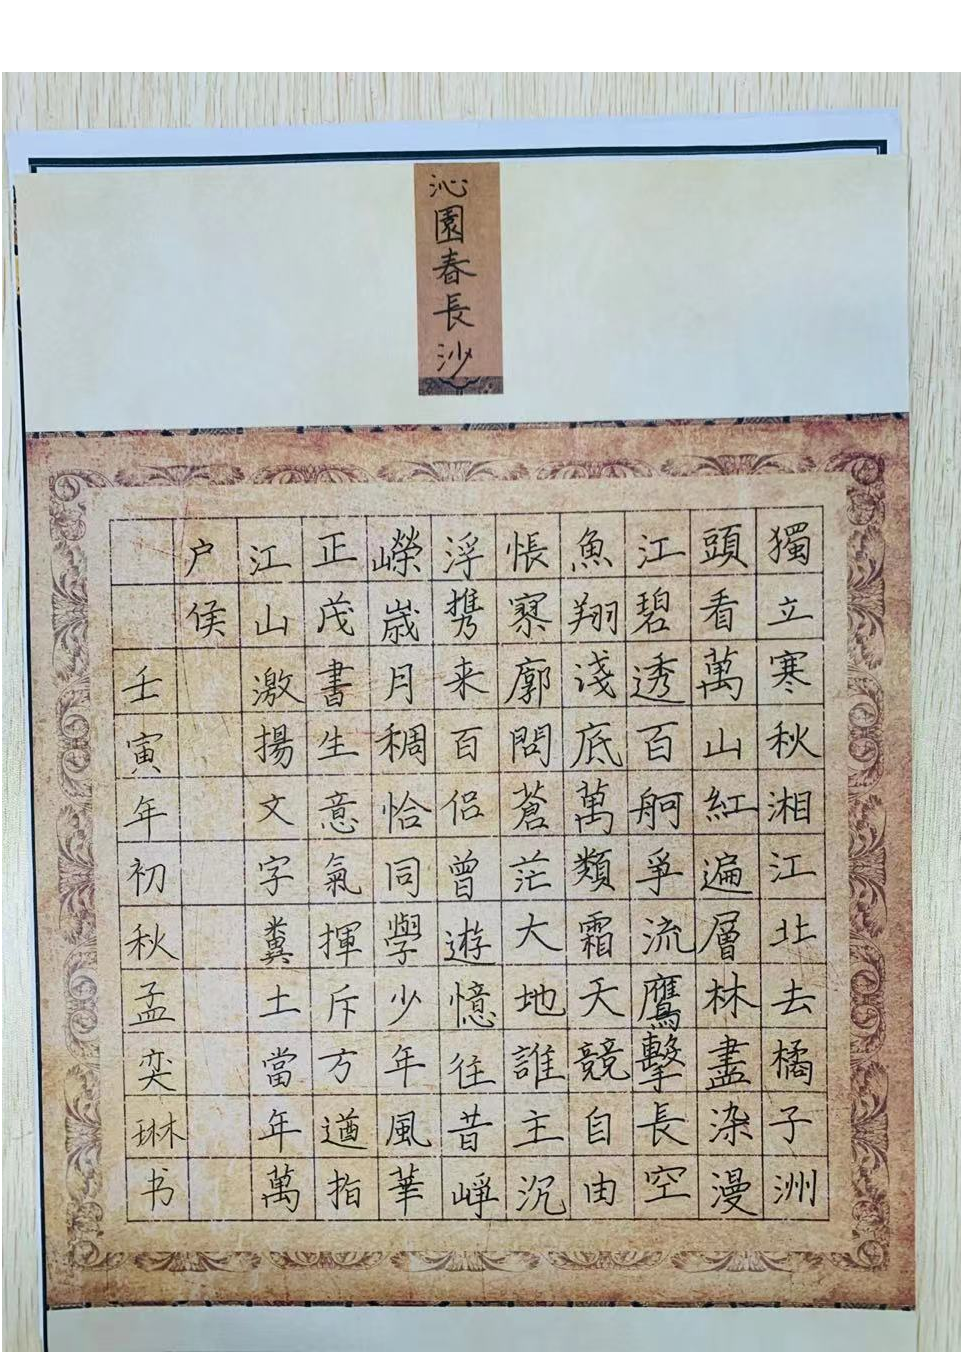 沁園春長沙
獨立寒秋湘江北去橘子洲
頭看萬山紅遍層林盡染漫
江碧透百舸爭流鷹擊長空
魚翔淺底萬類霜天競自由
悵寥廓問蒼茫大地誰主沉
浮攜来百侣曾遊憶往昔崢
嶸歲月稠恰同學少年風華
正茂書生意氣揮斥方遒指
江山激揚文字糞土當年萬
户侯
壬寅年初秋孟奕琳书